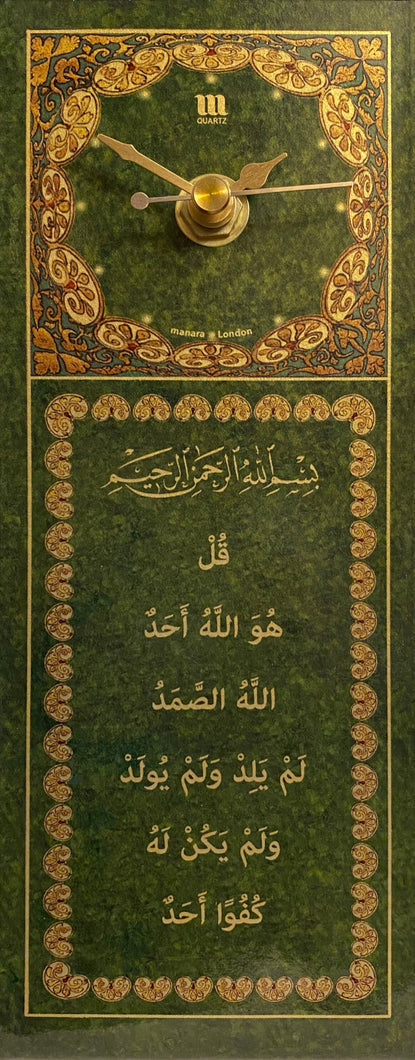 m
QUARTZ
manara London
بِسْمِ ٱللَّهِ ٱلرَّحْمَٰنِ ٱلرَّحِيمِ
قُلْ
هُوَ اللَّهُ أَحَدٌ
اللَّهُ الصَّمَدُ
لَمْ يَلِدْ وَلَمْ يُولَدْ
وَلَمْ يَكُنْ لَهُ
كُفُوًا أَحَدٌ